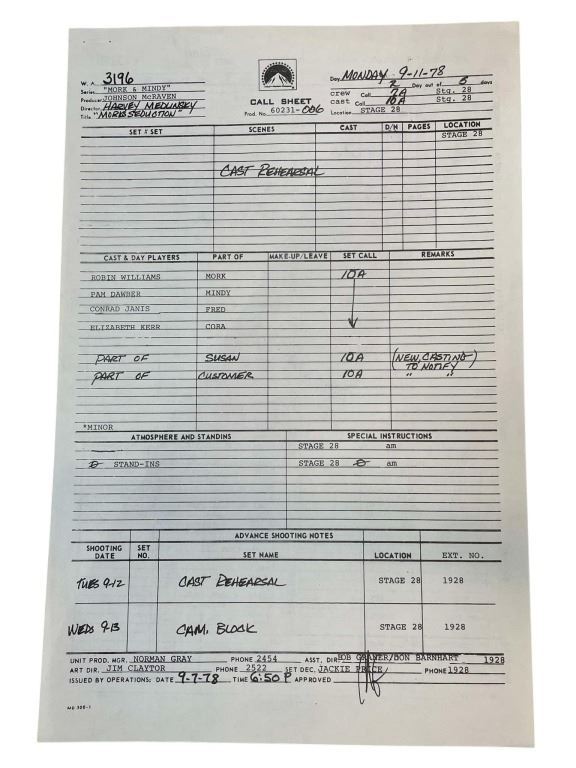 W. A. 3196
Series "MORK & MINDY"
Producer JOHNSON McRAVEN
Director HARVEY MEDLINSKY
Title "MORKS SEDUCTION"
CALL SHEET
Prod. No. 60231-006
Day MONDAY 9-11-78
2 Day out of 5 days
crew Call 7A Stg. 28
cast Call 10A Stg. 28
Location STAGE 28
SET # SET SCENES CAST D/N PAGES LOCATION
STAGE 28
CAST REHEARSAL
CAST & DAY PLAYERS PART OF MAKE-UP/LEAVE SET CALL REMARKS
ROBIN WILLIAMS MORK 10A
PAM DAWBER MINDY
CONRAD JANIS FRED
ELIZABETH KERR CORA
PART OF SUSAN 10A (NEW, CASTING
PART OF CUSTOMER 10A TO NOTIFY)
" "
*MINOR
ATMOSPHERE AND STANDINS SPECIAL INSTRUCTIONS
STAGE 28 am
STAND-INS STAGE 28 am
ADVANCE SHOOTING NOTES
SHOOTING DATE SET NO. SET NAME LOCATION EXT. NO.
TUES 9-12 CAST REHEARSAL STAGE 28 1928
WEDS 9-13 CAM. BLOCK STAGE 28 1928
UNIT PROD. MGR. NORMAN GRAY PHONE 2454 ASST. DIR. BOB GRANER/DON BARNHART 1928
ART DIR. JIM CLAYTOR PHONE 2522 SET DEC. JACKIE PRICE/ PHONE 1928
ISSUED BY OPERATIONS: DATE 9-7-78 TIME 6:50 P APPROVED